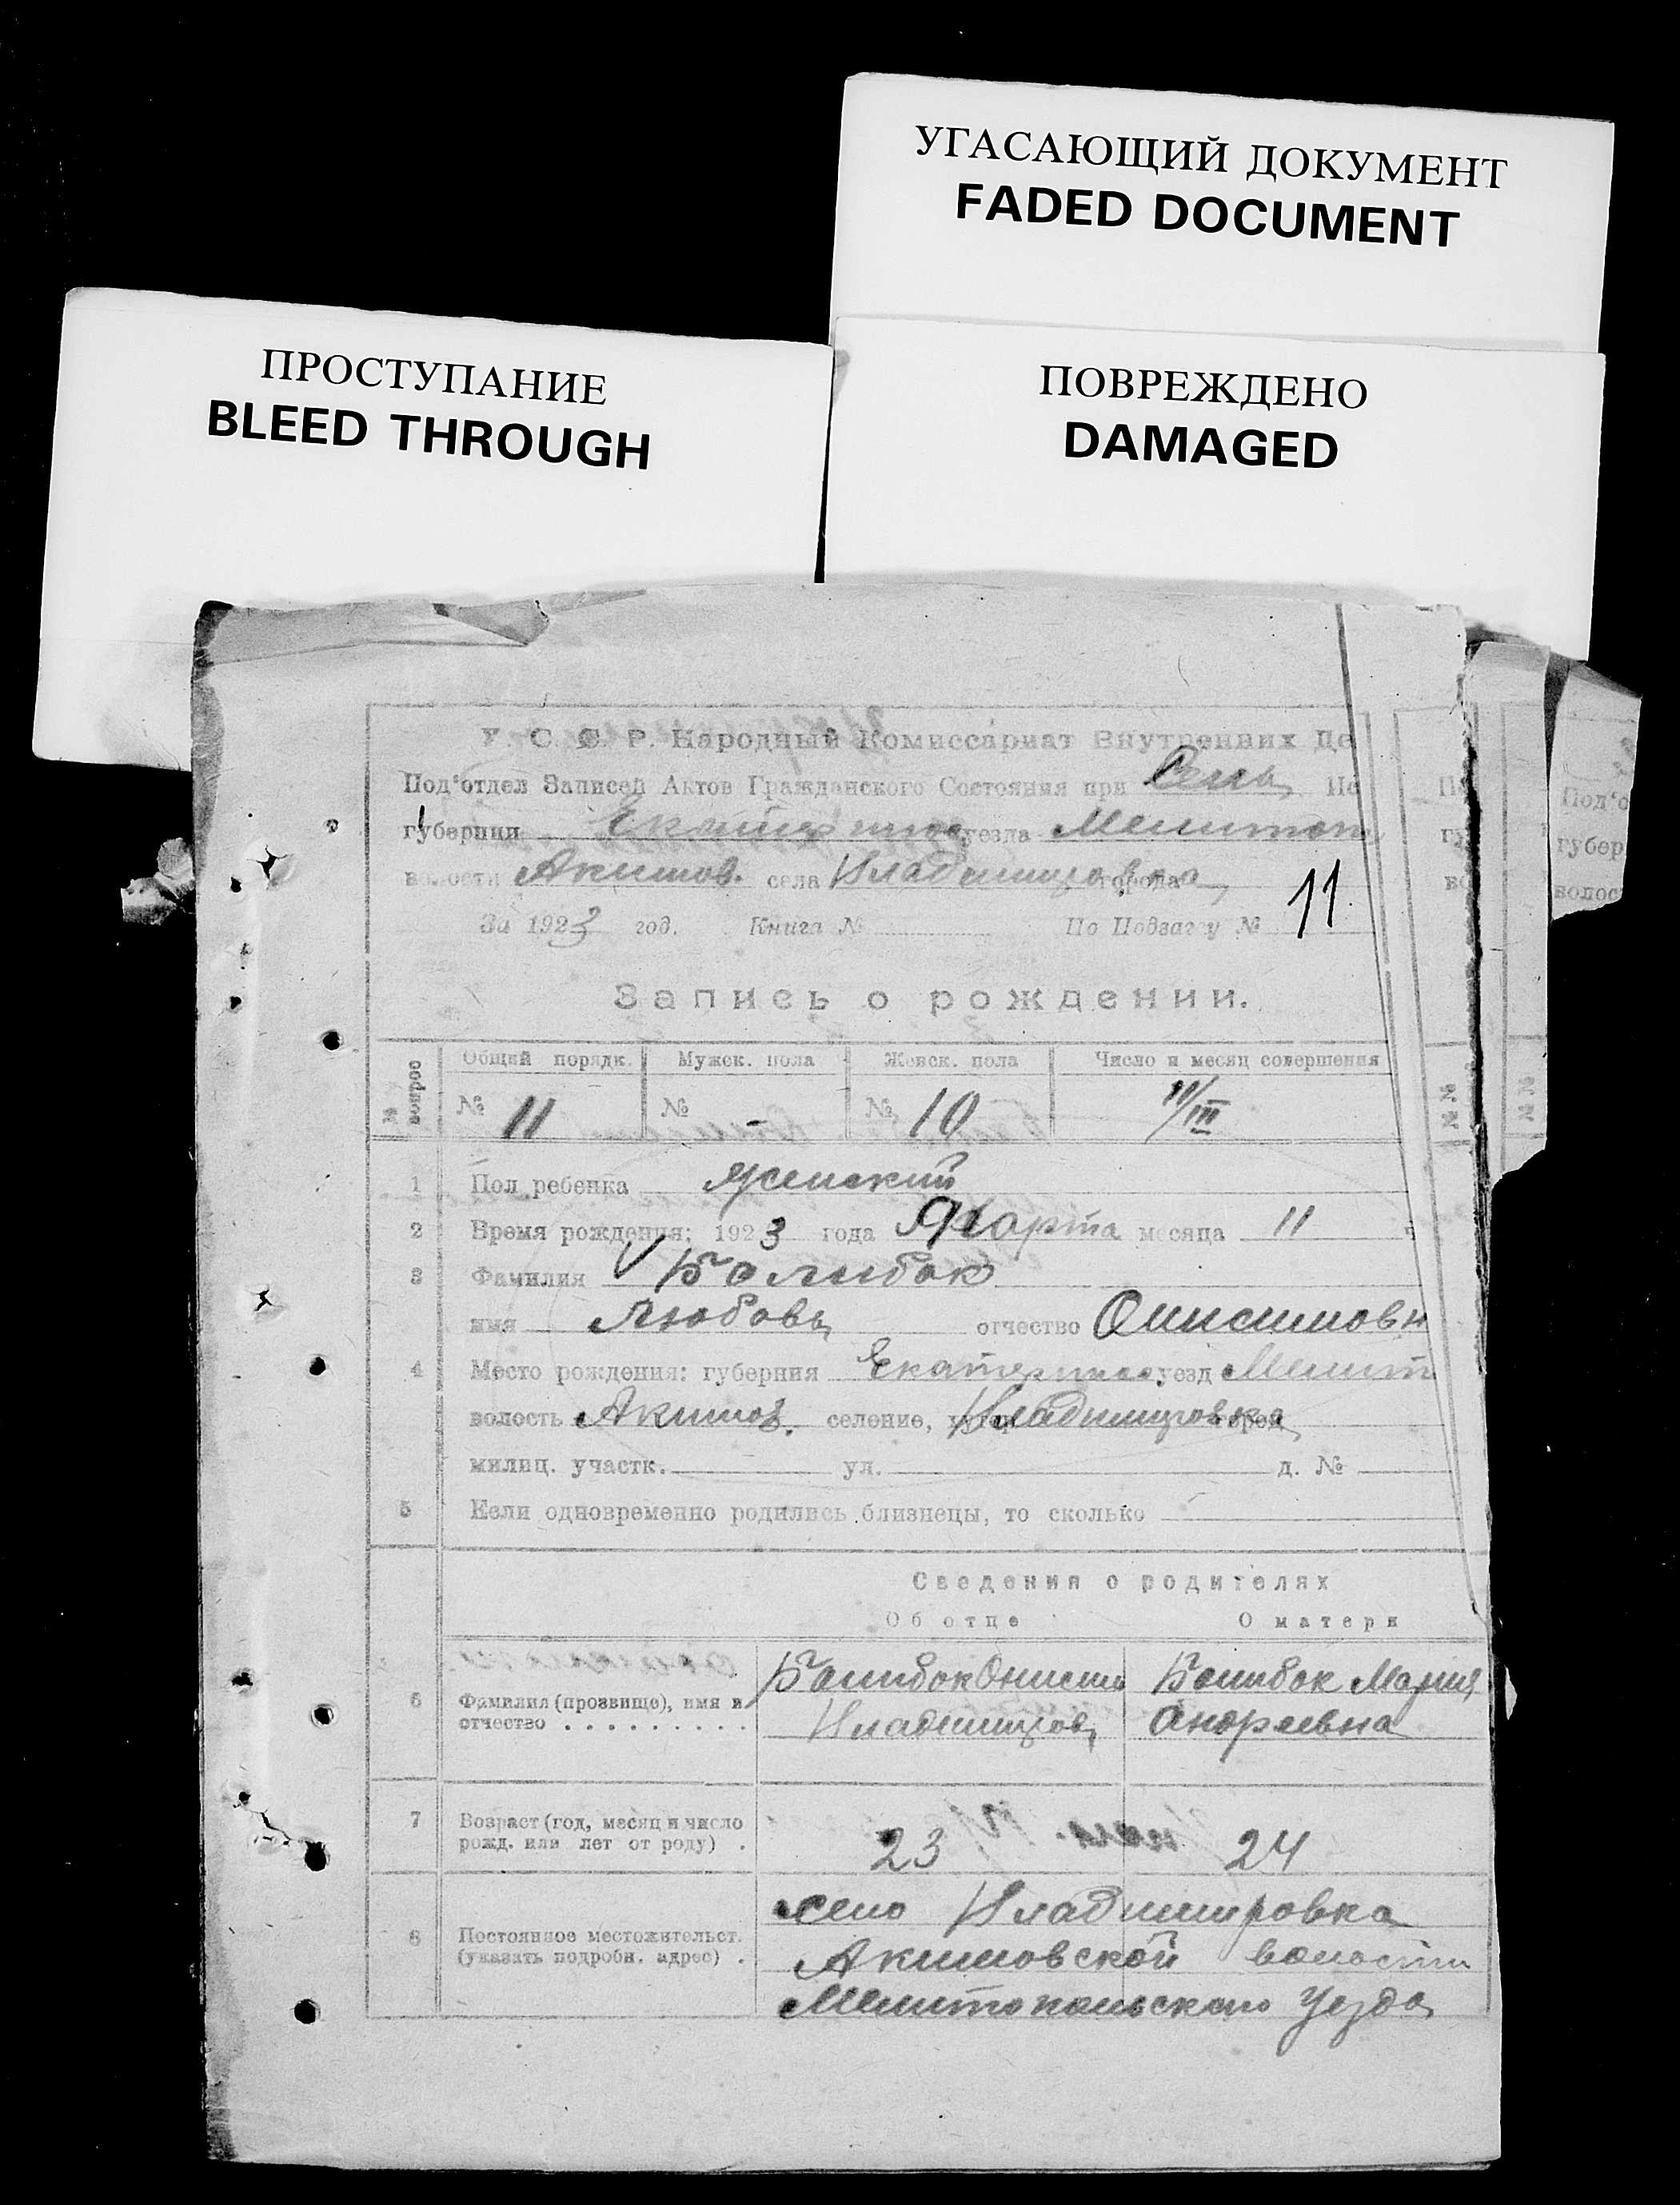 УГАСАЮЩИЙ ДОКУМЕНТ
FADED DOCUMENT
ПРОСТУПАНИЕ
BLEED THROUGH
ПОВРЕЖДЕНО
DAMAGED
У. С. С. Р. Народный Комиссариат Внутренних Де
Под'отдел Записей Актов Гражданского Состояния при
губернии Екатерино уезда Мелитоп
волости Акимов. села Владимировка города
За 1923 год. Книга № По Подзагсу № 11
Запись о рождении.
№ вопрос Общий порядк. Мужск. пола Женск. пола Число и месяц совершения
№ 11 № - № 10 11/III
1 Пол ребенка женский
2 Время рождения: 1923 года Марта месяца 11
3 Фамилия
имя Любовь отчество Онисимовн
4 Место рождения: губерния Екатерино. уезд Мелит
волость Акимов. селение, хутор Владимировка город
милиц. участк. ул. д. №
5 Если одновременно родились близнецы, то сколько
Сведения о родителях
Об отце О матери
6 Фамилия (прозвище), имя и отчество . . . . . . . . . .
Онисим
Владимиров
Мария
Андреевна
7 Возраст (год, месяц и число рожд. или лет от роду) . 23 24
8 Постоянное местожительст. (указать подробн. адрес) .
село Владимировка
Акимовской волости
Мелитопольского Уезда
Под'о
губер
волос
№ №
№ №